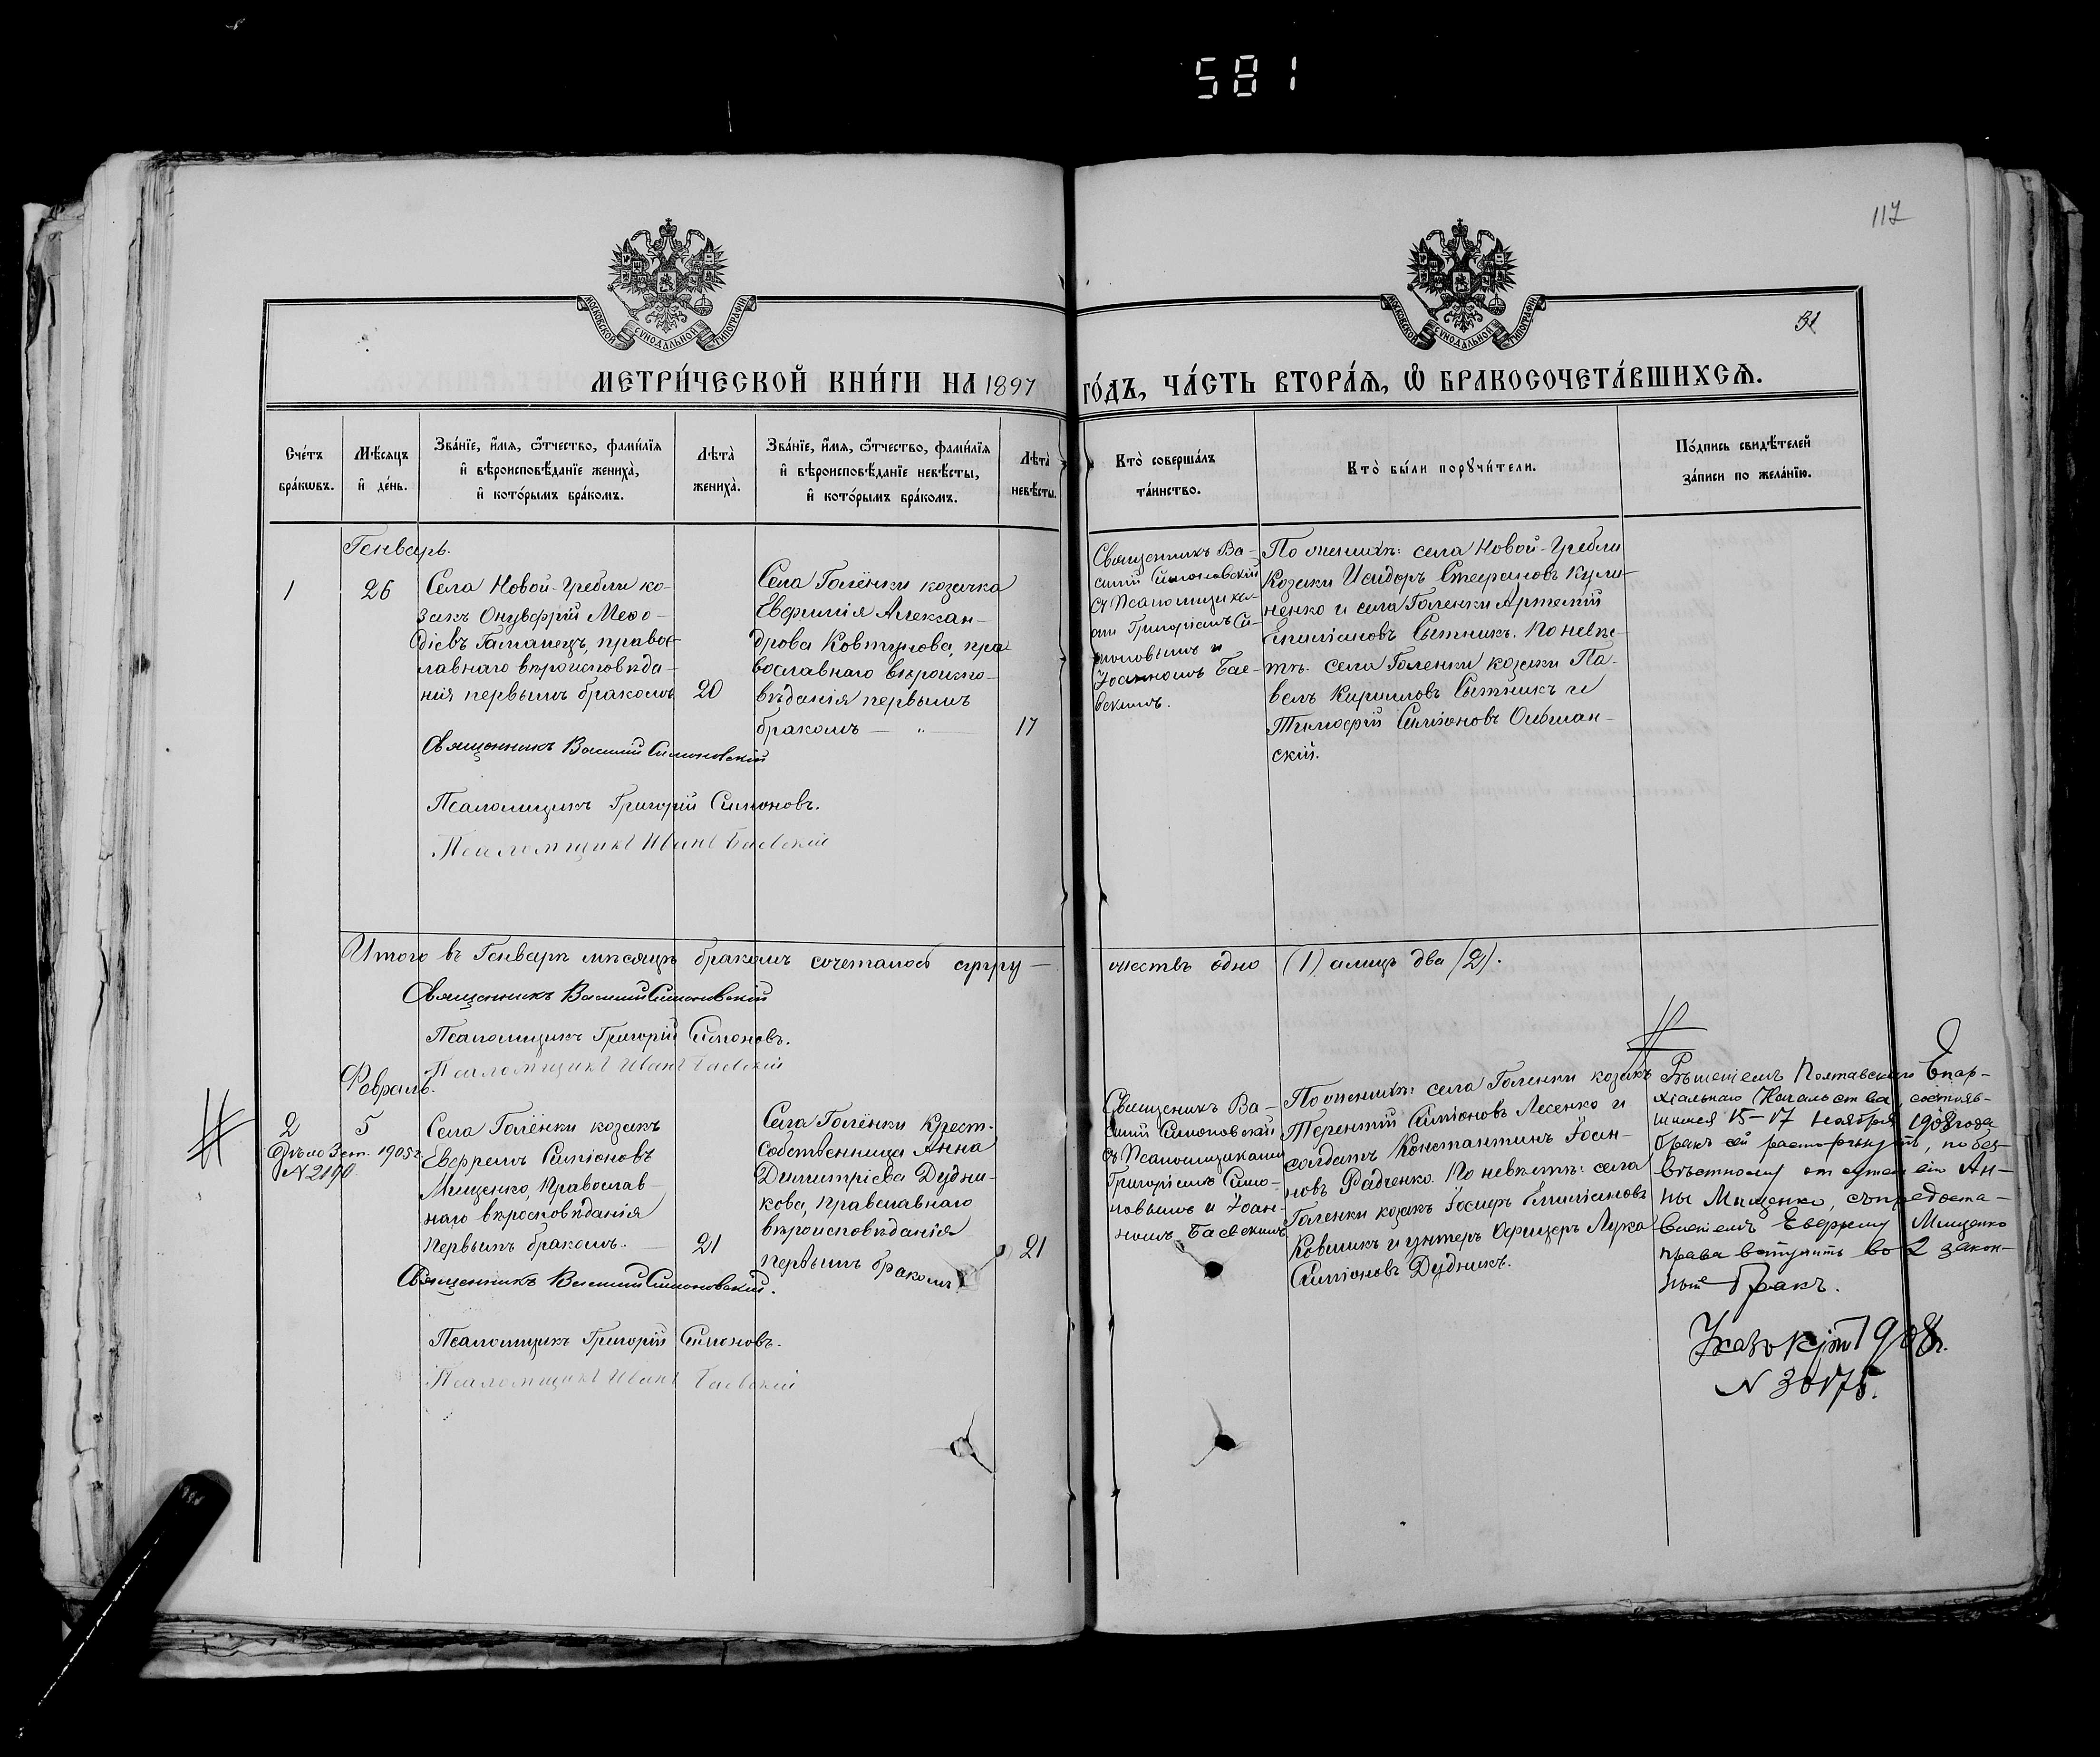 581
117
31
МОСКОВСКОЙ СѴНОДАЛЬНОЙ ТИПОГРАФІИ
МОСКОВСКОЙ СѴНОДАЛЬНОЙ ТИПОГРАФІИ
МЕТРИ́ЧЕСКОЙ КНИ́ГИ НА 1897 ГО́ДЪ, ЧА́СТЬ ВТОРА́Я, Ѡ БРАКОСОЧЕТА́ВШИХСЯ.
Сче́тъ бра́кѡвъ.
Мѣ́сяцъ и҆ де́нь.
Зва́нїе, и҆́мя, ѻ҆́тчество, фами́лїя и҆ вѣроисповѣ́данїе жениха̀, и҆ кото́рымъ бра́комъ.
Лѣта̀ жениха̀.
Зва́нїе, и҆́мя, ѻ҆́тчество, фами́лїя и҆ вѣроисповѣ́данїе невѣ́сты, и҆ кото́рымъ бра́комъ.
Лѣта̀ невѣ́сты.
Кто̀ соверша́лъ та́инство.
Кто̀ бы́ли порꙋчи́тели.
По́дпись свидѣ́телей за́писи по жела́нїю.
Генварь.
1
26
Села Новой-Гребли ко-
закъ Онуфрій Меѳо-
діевъ Гаманецъ, правос-
лавнаго вѣроисповѣда-
нія первымъ бракомъ
20
Села Голёнки козачка
Евфимія Алексан-
дрова Ковтунова, пра
вославнаго вѣроиспо-
вѣданія первымъ
бракомъ
17
Священникъ Ва-
силій Симоновскій
съ Псаломщика-
ми Григоріемъ Си-
моновымъ и
Іоанномъ Бае-
вскимъ.
По женихѣ: села Новой-Гребли
козаки Исидоръ Стефановъ Кули-
ненко и села Голенки Артемій
Емиліановъ Сытникъ. По невѣс-
тѣ: села Голенки козаки Па-
велъ Кирилловъ Сытникъ и
Тимоѳей Симіоновъ Ольшан-
скій.
Священникъ Василій Симоновскій
Псаломщикъ Григорій Симоновъ.
Псаломщикъ Иванъ Баевскій
Итого въ Генварѣ мѣсяцѣ бракомъ сочеталось супру-
жествъ одно (1) а лицъ два (2).
Священникъ Василій Симоновскій
Псаломщикъ Григорій Симоновъ.
Псаломщикъ Иванъ Баевскій
Февраль.
2
5
Дѣло 3 ст. 1905 г.
N 2190
Села Голёнки козакъ
Ефремъ Симіоновъ
Мищенко, Православ-
наго вѣроисповѣданія
первымъ бракомъ.
21
Села Голёнки Крест.
Собственница Анна
Димитріева Дудни-
кова, Православнаго
вѣроисповѣданія
первымъ бракомъ.
21
Священникъ Ва-
силій Симоновскій
съ Псаломщиками
Григоріемъ Симо-
новымъ и Іоан-
номъ Баевскимъ
По женихѣ: села Голенки козакъ
Терентій Симіоновъ Лесенко и
солдатъ Константинъ Іоан-
новъ Радченко. По невѣстѣ: села
Голенки козакъ Іосифъ Емиліановъ
Ковшикъ и унтеръ Офицеръ Лука
Симіоновъ Дудникъ.
Рѣшеніемъ Полтавскаго Епар-
хіальнаго Начальства, состояв-
шимся 15-17 ноября 1908 года
бракъ сей расторгнутъ, по без-
вѣстному отсутствію Ан-
ны Мищенко, съ предоста-
вленіемъ Ефрему Мищенко
права вступить во 2 закон-
ный бракъ.
Указъ 1908 г.
N 30175.
Священникъ Василій Симоновскій.
Псаломщикъ Григорій Симоновъ.
Псаломщикъ Иванъ Баевскій